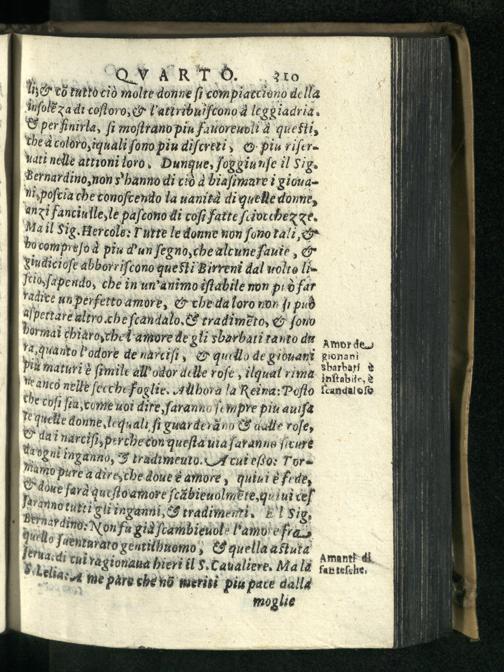 QVARTO. 310
li; & cō tutto ciò molte donne si compiacciono della
insolēza di costoro, & l'attribuiscono à leggiadria.
& per finirla, si mostrano piu fauoreuoli à questi,
che à coloro, iquali sono piu discreti, & piu riser-
uati nelle attioni loro. Dunque, soggiunse il Sig.
Bernardino, non s'hanno di ciò à biasimare i gioua-
ni, poscia che conoscendo la uanità di quelle donne,
anzi fanciulle, le pascono di cosi fatte sciocchezze.
Ma il Sig. Hercole: Tutte le donne non sono tali, &
ho compreso à piu d'un segno, che alcune sauie, &
giudiciose abborriscono questi Birreni dal uolto li-
scio, sapendo, che in un'animo istabile non può far
radice un perfetto amore, & che da loro non si può
aspettare altro. che scandalo. & tradimēto, & sono
hormai chiaro, che l amore de gli sbarbati tanto du
ra, quanto l'odore de narcisi, & quello de giouani
più maturi è simile all'odor delle rose, ilqual rima
ne anco nelle secche foglie. Allhora la Reina: Posto
che cosi sia, come uoi dire, saranno sempre piu auisa
te quelle donne, lequali si guarderāno & dalle rose,
& da i narcisi, perche con questa uia saranno sicure
da ogni inganno, & tradimento. A cui esso: Tor-
niamo pure a dire, che doue è amore, quiui è fede,
& doue sarà questo amore scābieuolmēte, quiui ces
saranno tutti gli inganni, & tradimenti. E l Sig.
Bernardino: Non fu già scambieuole l'amore fra
quello suenturato gentilhuomo, & quella astuta
serua: di cui ragionaua hieri il S. Caualiere. Ma la
S. Lelia: A me pare che nō meriti piu pace dalla
moglie
Amor de
gionani
sbarbati è
instabile, è
scandaloso
Amanti di
fantesche.